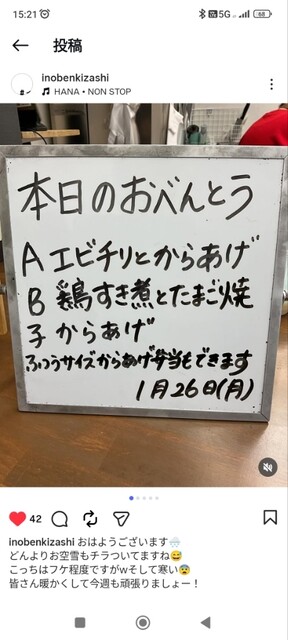 15:21
5G
68
投稿
inobenkizashi
HANA • NON STOP
本日のおべんとう
A エビチリとからあげ
B 鶏すき煮とたまご焼
子 からあげ
ふつうサイズからあげ弁当もできます
1月26日(月)
42
inobenkizashi おはようございます🌨️
どんよりお空雪もチラついてますね😅
こっちはフケ程度ですがwそして寒い😨
皆さん暖かくして今週も頑張りましょー！